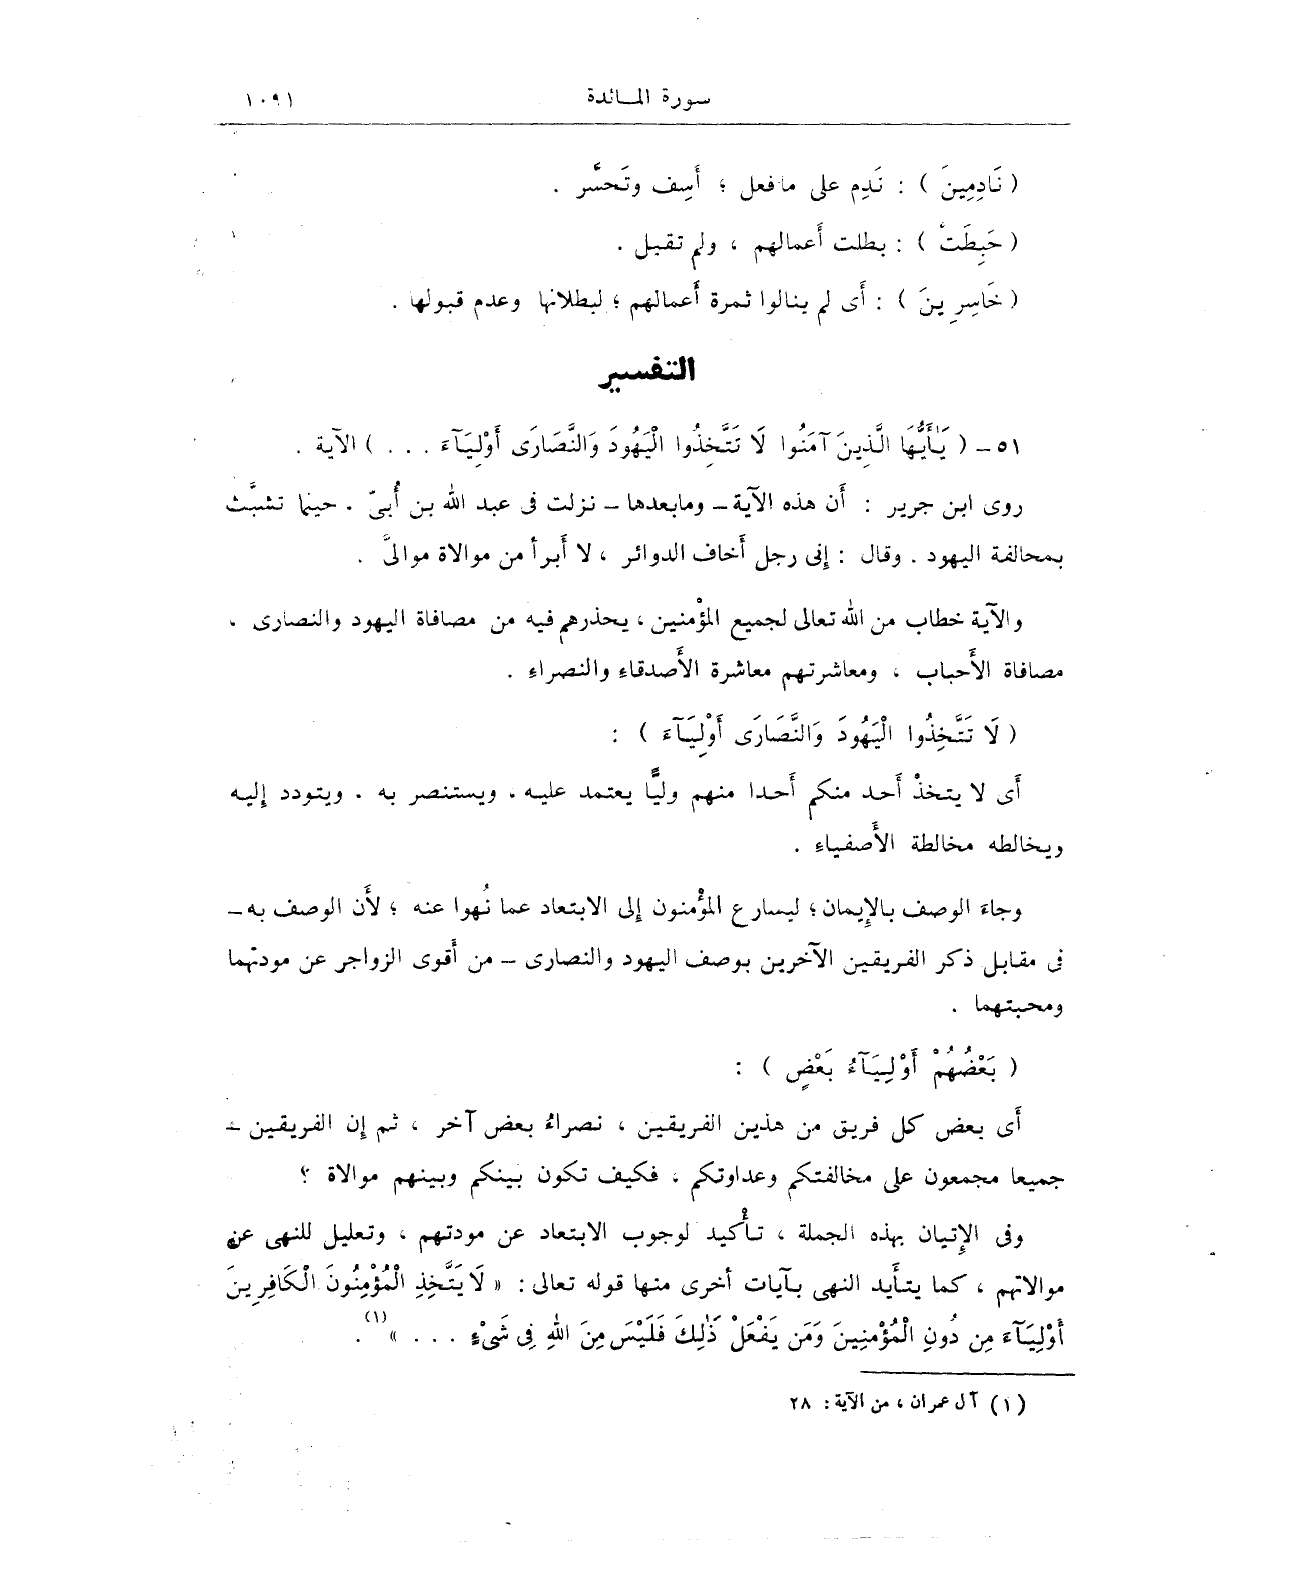 سورة المائدة ١٠٩١
( نَادِمِينَ ) : نَدِم على مافعل ؛ أَسِف وتَحسَّر .
( حَبِطَتْ ) : بطلت أَعمالهم ، ولم تقبل .
( خَاسِرِينَ ) : أَى لم ينالوا ثمرة أَعمالهم ؛ لبطلانها وعدم قبولها .
التفسير
٥١ - ( يَٰأَيُّهَا الَّذِينَ آمَنُوا لَا تَتَّخِذُوا الْيَهُودَ وَالنَّصَارَى أَوْلِيَآءَ . . . ) الآية .
روى ابن جرير : أَن هذه الآية - ومابعدها - نزلت فى عبد الله بن أُبىّ . حينما تشبَّث
بمحالفة اليهود . وقال : إنى رجل أَخاف الدوائر ، لا أَبرأ من موالاة موالىَّ .
والآية خطاب من الله تعالى لجميع المؤْمنين ، يحذرهم فيه من مصافاة اليهود والنصارى .
مصافاة الأَحباب ، ومعاشرتهم معاشرة الأَصدقاءِ والنصراءِ .
( لَا تَتَّخِذُوا الْيَهُودَ وَالنَّصَارَى أَوْلِيَآءَ ) :
أَى لا يتخذْ أَحد منكم أَحدا منهم وليًّا يعتمد عليه . ويستنصر به . ويتودد إليه
ويخالطه مخالطة الأَصفياءِ .
وجاءَ الوصف بالإيمان ؛ ليسارع المؤْمنون إلى الابتعاد عما نُهوا عنه ؛ لأَن الوصف به -
فى مقابل ذكر الفريقين الآخرين بوصف اليهود والنصارى - من أَقوى الزواجر عن مودتهما
ومحبتهما .
( بَعْضُهُمْ أَوْلِيَآءُ بَعْضٍ ) :
أَى بعض كل فريق من هذين الفريقين ، نصراءُ بعض آخر ، ثم إن الفريقين -
جميعا مجمعون على مخالفتكم وعداوتكم ، فكيف تكون بينكم وبينهم موالاة ؟
وفى الإتيان بهذه الجملة ، تأْكيد لوجوب الابتعاد عن مودتهم ، وتعليل للنهى عن
موالاتهم ، كما يتأَيد النهى بآيات أخرى منها قوله تعالى : « لَا يَتَّخِذِ الْمُؤْمِنُونَ الْكَافِرِينَ
أَوْلِيَآءَ مِن دُونِ الْمُؤْمِنِينَ وَمَن يَفْعَلْ ذَٰلِكَ فَلَيْسَ مِنَ اللهِ فِى شَىْءٍ . . . » (١) .
(١) آل عمران ، من الآية : ٢٨